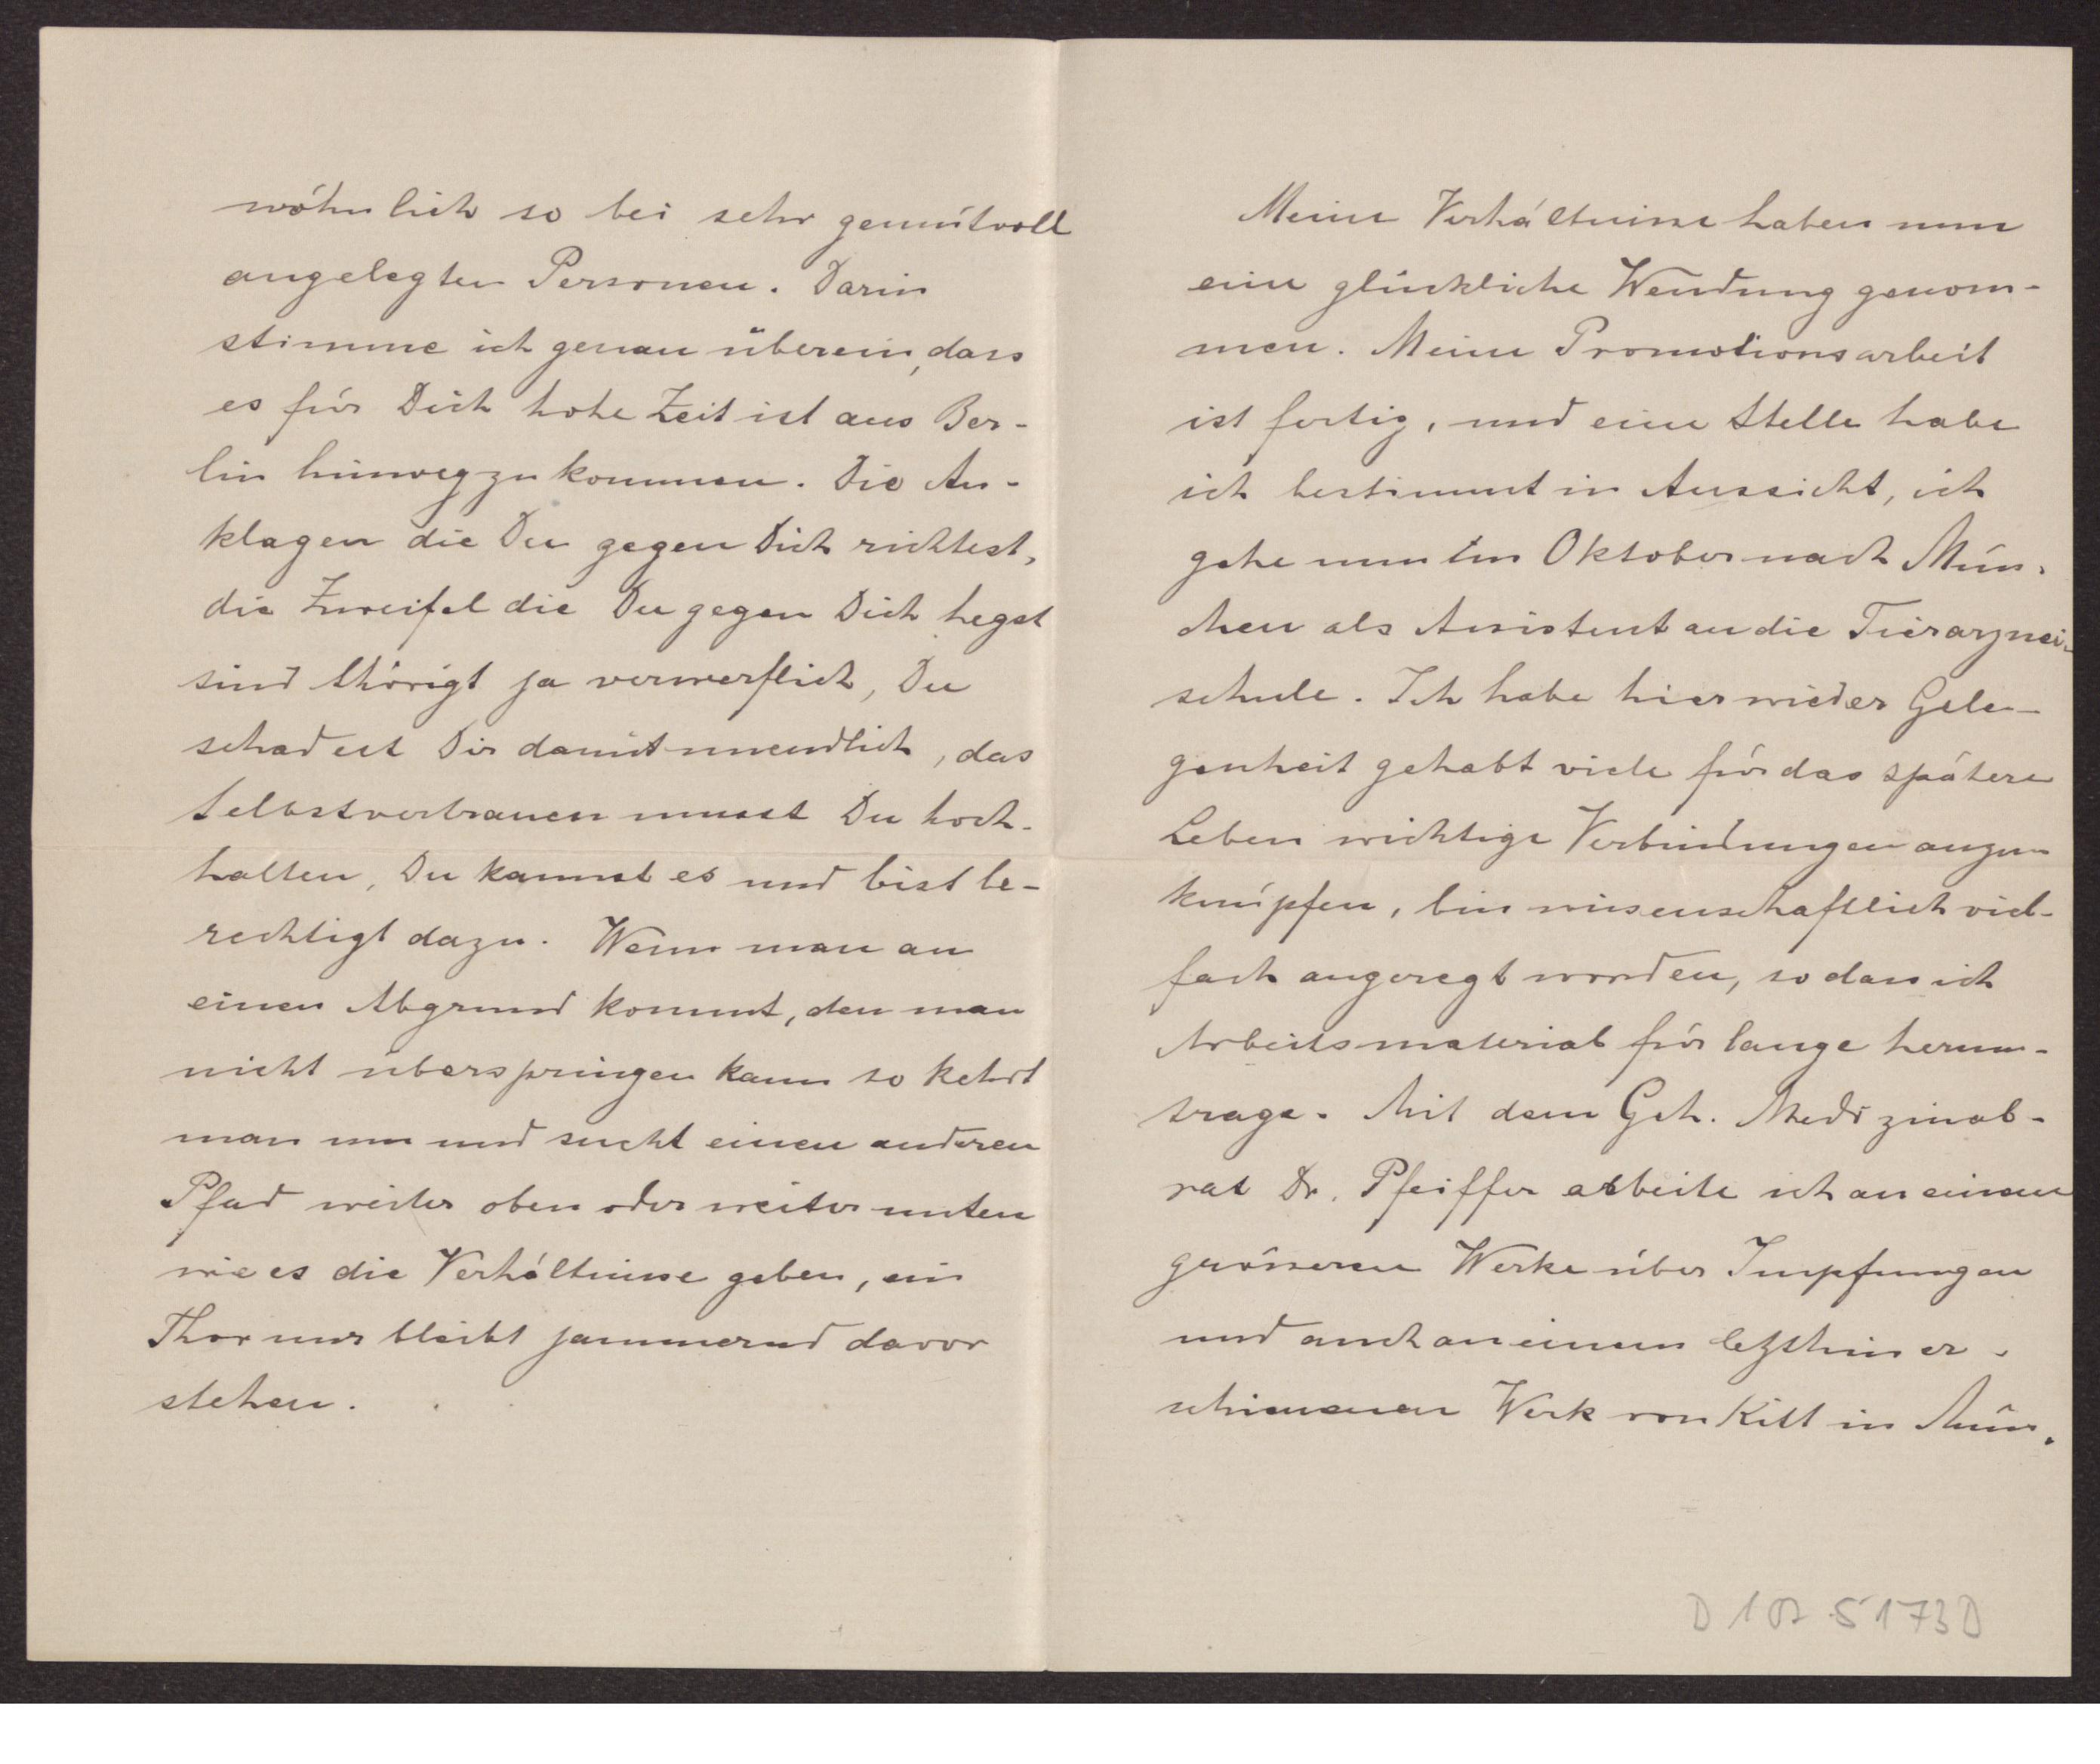 wöhnlich so bei sehr gemütvoll
angelegten Personen. Darin
stimme ich genau überein, dass
es für Dich hohe Zeit ist aus Ber-
lin hinwegzukommen. Die An-
klagen die Du gegen Dich richtest,
die Zweifel die Du gegen Dich hegst
sind thörigt ja verwerflich, Du
schadest Dir damit unendlich, das
Selbstvertrauen musst Du hoch-
halten, Du kannst es und bist be-
rechtigt dazu. Wenn man an
einen Abgrund kommt, den man
nicht überspringen kann so kehrt
man um und sucht einen anderen
Pfad weiter oben oder weiter unten
wie es die Verhältnisse geben, ein
Thor nur bleibt jammernd davor
stehen.
Meine Verhältnisse haben nun
eine glückliche Wendung genom-
men. Meine Promotionsarbeit
ist fertig, und eine Stelle habe
ich bestimmt in Aussicht, ich
gehe nun im Oktober nach Mün-
chen als Assistent an die Tierarznei-
schule. Ich habe hier wieder Gele-
genheit gehabt viele für das spätere
Leben wichtige Verbindungen anzu-
knüpfen, bin wissenschaftlich viel-
fach angeregt worden, so dass ich
Arbeitsmaterial für lange herum-
trage. Mit dem Geh. Medizinal-
rat Dr. Pfeiffer arbeite ich an einem
grösseren Werke über Impfungen
und auch an einem letzthin er-
schienenen Werk von Kitt in Mün-
D 107 5173 D